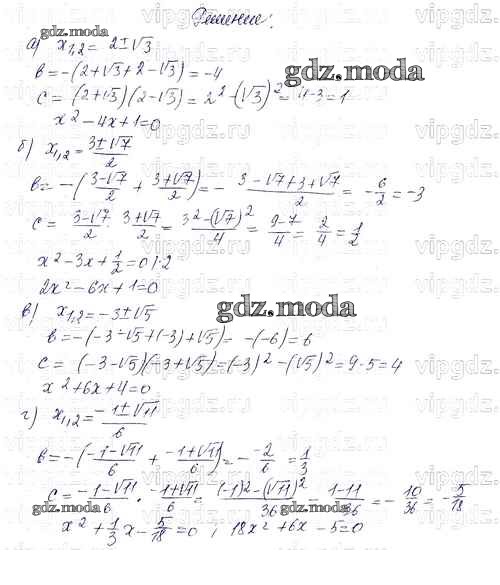 Решение:
а) x₁,₂ = 2±√3
b = -(2+√3+2-√3) = -4
c = (2+√3)(2-√3) = 2² - (√3)² = 4-3 = 1
x² - 4x + 1 = 0
б) x₁,₂ = (3±√7)/2
b = -((3-√7)/2 + (3+√7)/2) = - (3-√7+3+√7)/2 = -6/2 = -3
c = (3-√7)/2 · (3+√7)/2 = (3²-(√7)²)/4 = (9-7)/4 = 2/4 = 1/2
x² - 3x + 1/2 = 0 | · 2
2x² - 6x + 1 = 0
в) x₁,₂ = -3±√5
b = -(-3-√5+(-3)+√5) = -(-6) = 6
c = (-3-√5)(-3+√5) = (-3)² - (√5)² = 9-5 = 4
x² + 6x + 4 = 0
г) x₁,₂ = (-1±√11)/6
b = -((-1-√11)/6 + (-1+√11)/6) = - (-2)/6 = 1/3
c = (-1-√11)/6 · (-1+√11)/6 = ((-1)²-(√11)²)/36 = (1-11)/36 = -10/36 = -5/18
x² + 1/3 x - 5/18 = 0 ; 18x² + 6x - 5 = 0
gdz.moda
vipgdz.ru